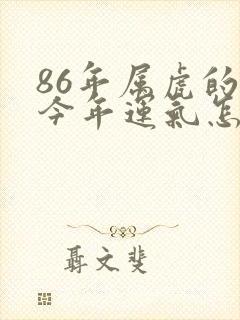 86年属虎的
今年运气怎
聂文斐